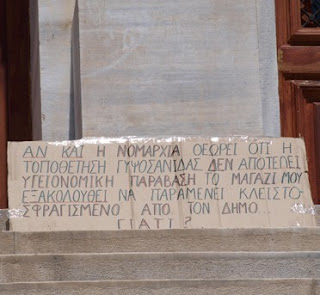 ΑΝ ΚΑΙ Η ΝΟΜΑΡΧΙΑ ΘΕΩΡΕΙ ΟΤΙ Η
ΤΟΠΟΘΕΤΗΣΗ ΓΥΨΟΣΑΝΙΔΑΣ ΔΕΝ ΑΠΟΤΕΛΕΙ
ΥΓΕΙΟΝΟΜΙΚΗ ΠΑΡΑΒΑΣΗ ΤΟ ΜΑΓΑΖΙ ΜΟΥ
ΕΞΑΚΟΛΟΥΘΕΙ ΝΑ ΠΑΡΑΜΕΝΕΙ ΚΛΕΙΣΤΟ-
ΣΦΡΑΓΙΣΜΕΝΟ ΑΠΟ ΤΟΝ ΔΗΜΟ...
ΓΙΑΤΙ?